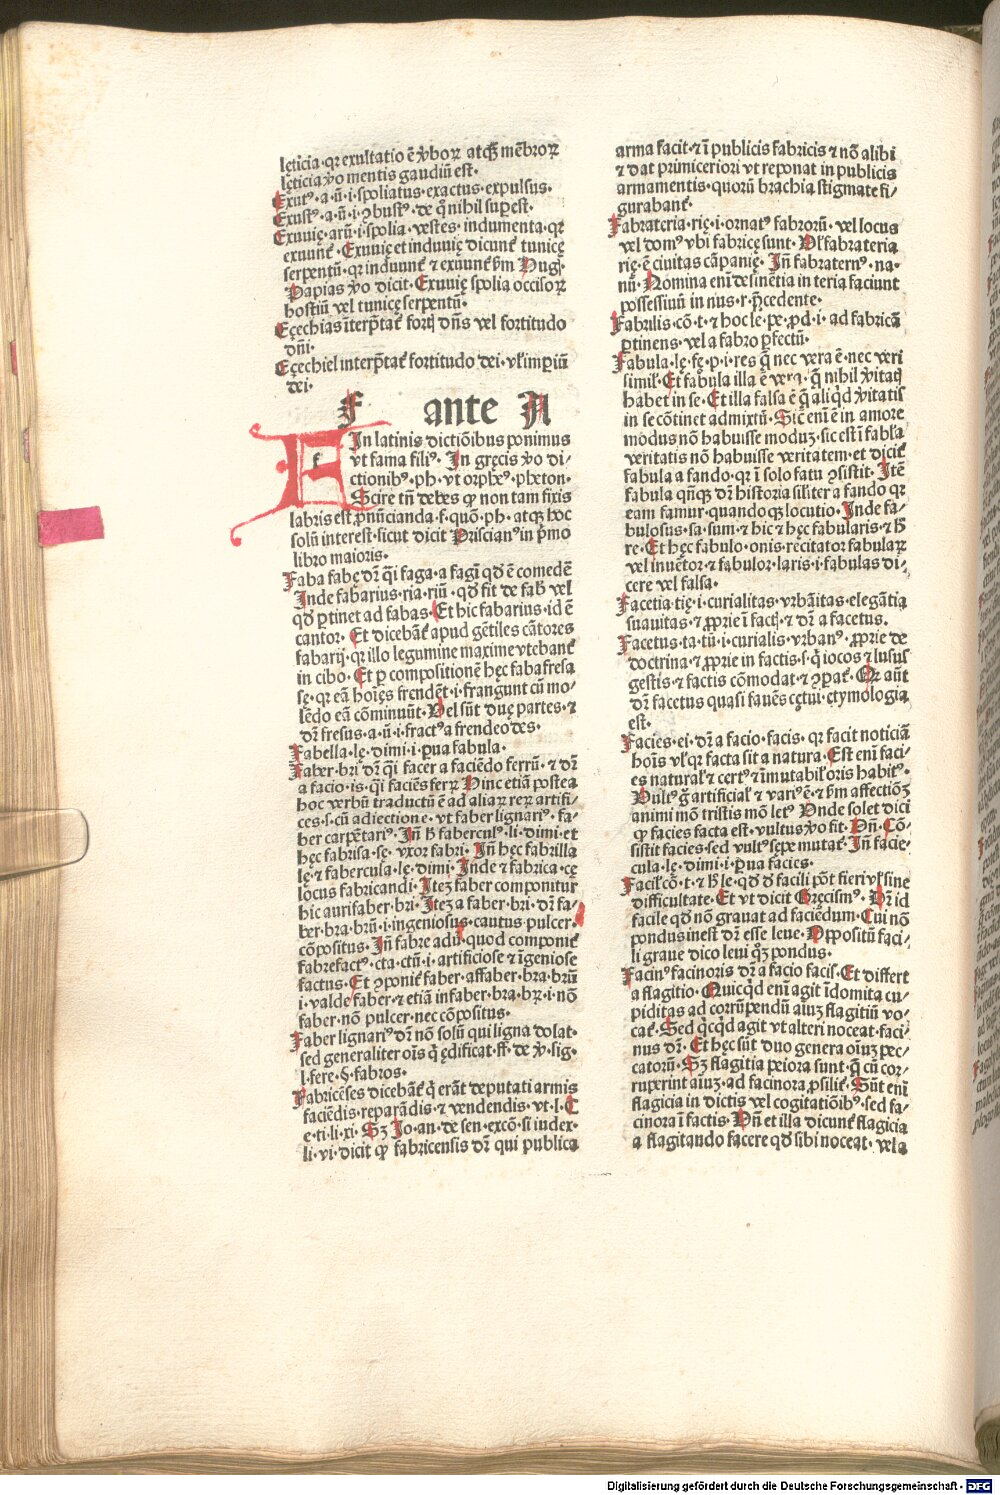 lęticia·qr exultatio ē ꝟboꝝ atqꝫ mēbroꝝ
lęticia ꝟo mentis gaudiū est·
Exutꝰ·a·ū·i·spoliatus·exactus·expulsus·
Exustꝰ·a·ū·i·ꝯbustꝰ·de q̄ nihil suꝑest·
Exuvię·arū·i·spolia·vestes·indumenta·qr
exuunt᷑·Exuvię et induvię dicunt᷑ tunicę
serpentū·qr induunt᷑ ⁊ exuunt᷑ ẜm Hug·
Papias ꝟo dicit·Exuvię spolia occisoꝝ
hostiū vel tunicę serpentū·
Eȩchias īterp̄tat᷑ forti dn̄s vel fortitudo
dn̄i·
Eȩchiel interp̄tat᷑ fortitudo dei·vl̓ imperiū
dei·
F ante A
F In latinis dictiōibus ponimus
vt fama filiꝰ·In gręcis ꝟo di-
ctionibꝰ·ph·vt orpheꝰ·pheton·
Scire tn̄ debes ꝙ non tam fixis
labris est ꝓnūcianda·f·quō·ph·atqꝫ hoc
solū interest·sicut dicit Priscianꝰ in pͥmo
libro maioris·
Faba fabę dr̄ qͣi faga·a fagī qd̓ ē comedē
Inde fabarius·ria·riū·qd̓ fit de fab̓ vel
qd̓ ꝑtinet ad fabas·Et hic fabarius·id ē
cantor·Et dicebāt᷑ apud gētiles cātores
fabarij·qr illo legumine maxime vtebant᷑
in cibo·Et ꝑ compositionē hęc faba fresa
sę·qr eā hoīęs frendēt·i·frangunt cū mo-
lēdo eā cōminuūt·Vel sūt duę partes·⁊
dr̄ fresus·a·ū·i·fractꝰ a frendeo des·
Fabella·lę·dimi·i·ꝑua fabula·
Faber·bri dr̄ qͣi facer a faciēdo ferrū·⁊ dr̄
a facio·is·qͣi faciēs ferꝝ Hinc etiā postea
hoc verbū traductū ē ad aliaꝝ reꝝ artifi-
ces·s·cū adiectione·vt faber lignariꝰ·fa-
ber carpētariꝰ·In̄ h̓ faberculꝰ·li·dimi·et
hęc fabrisa·sę·vxor fabri·In̄ hęc fabrilla
lę·⁊ fabercula·lę·dimi·Inde ⁊ fabrica·cę
locus fabricandi·Iteꝫ faber componitur
hic aurifaber·bri·Iteꝫ a faber·bri·dr̄ fa-
ber·bra·brū·i·ingeniosus·cautus·pulcer·
cōpositus·In̄ fabre adū·quod componit᷑
fabrefactꝰ·cta·ctū·i·artificiose ⁊ īgeniose
factus·Et ꝯponit᷑ faber·affaber·bra·brū
i·valde faber·⁊ etiā infaber·bra·bꝝ·i·nō
faber·nō pulcer·nec cōpositus·
Faber lignariꝰ dr̄ nō solū qui ligna dolat·
sed generaliter oīs qͥ ędificat·ff·de ꝟ·sig·
l·fere·§·fabros·
Fabricēses dicebāt᷑ qͥ erāt deputati armis
faciēdis·reparādis·⁊ vendendis·vt·l·C
e·ti·li·xi·Sꝫ Jo·an·de sen·excō·si iudex·
li·vi·dicit ꝙ fabricensis dr̄ qui publica
arma facit·⁊ ī publicis fabricis ⁊ nō alibi
⁊ dat primiceriori vt reponat in publicis
armamentis·quorū brachia stigmate fi-
gurabant᷑·
Fabrateria·rię·i·ornatꝰ fabrorū·vel locus
vel domꝰ vbi fabricę sunt·Vl̓ fabrateria
rię·ē civitas cāpanię·In̄ fabraternꝰ·na·
nū·Nomina enī desinētia in teria faciunt
possessiuū in nus·r·p̄cedente·
Fabrilis·cō·t·⁊ hoc le·pe·ꝓd·i·ad fabricā
ꝑtinens·vel a fabro ꝑfectū·
Fabula·lę·fę·p·i·res q̄ nec vera ē·nec veri
simil̓·Et fabula illa ē vera·q̄ nihil ꝟitatꝭ
habet in se·Et illa falsa ē q̄ aliqͥd ꝟitatis
in se cōtinet admixtū·Sic̄ enī ē in amore
modus nō habuisse moduꝫ·sic est ī fabl̓a
veritatis nō habuisse veritatem·et dicit᷑
fabula a fando·qr ī solo fatu ꝯsistit·Itē
fabula qn̄qꝫ dr̄ historia sil̓iter a fando qr
eam famur·quandoqꝫ locutio·Inde fa-
bulosus·sa·sum·⁊ hic ⁊ hęc fabularis·⁊ h̓
re·Et hęc fabulo·onis·recitator fabulaꝝ
vel inuētor·⁊ fabulor·laris·i·fabulas di-
cere vel falsa·
Facetia·tię·i·curialitas·vrbāitas·elegātia
suauitas·⁊ ꝓprie ī factꝭ·⁊ dr̄ a facetus.
Facetus·ta·tū·i·curialis·vrbanꝰ·ꝓprie de
doctrina·⁊ ꝓprie in factis·s·qͥ iocos ⁊ lusus
gestis·⁊ factis cōmodat·⁊ ꝯparat᷑·Qr aūt
dr̄ facetus quasi fauēs cętui·etymologia
est·
Facies·ei·dr̄ a facio·facis·qr facit noticiā
hoīs vl̓ qr facta sit a natura·Est enī faci-
es natural̓·⁊ certꝰ ⁊ īmutabil̓ oris habitꝰ·
Vultꝰ g̓ artificial̓·⁊ variꝰ ē·⁊ ẜm affectiōꝫ
animi mō tristis mō letꝰ·Vnde solet dici
ꝙ facies facta est·vultus ꝟo fit·Vn̄·Cō-
sistit facies·sed vultꝰ sępe mutat᷑·In̄ facie-
cula·lę·dimi·i·ꝑua facies·
Facil̓ cō·t·⁊ h̓ le·qd̓ d̓ facili pōt fieri vl̓ sine
difficultate·Et vt dicit Gręcismꝰ·Dr̄ id
facile qd̓ nō grauat ad faciēdum·Cui nō
pondus inest dr̄ esse leue·Ppositū faci-
li graue dico leui qͦꝫ pondus·
Facinꝰ facinoris dr̄ a facio facis·Et differt
a flagitio·Quicqͥd enī agit īdomita cu-
piditas ad corrūpendū aīuꝫ flagitiū vo-
cat᷑·Sed qͥcqͥd agit vt alteri noceat·faci-
nus dr̄·Et hęc sūt duo genera oīuꝫ pec-
catorū·Sꝫ flagitia peiora sunt·q̄ cū cor-
ruperint aīuꝫ·ad facinora ꝓsiliē·Sūt enī
flagicia in dictis vel cogitatiōibꝰ·sed fa-
cinora ī factis·Vn̄ et illa dicunt᷑ flagicia
a flagitando facere qd̓ sibi noceat·vel a
Digitalisierung gefördert durch die Deutsche Forschungsgemeinschaft - DFG